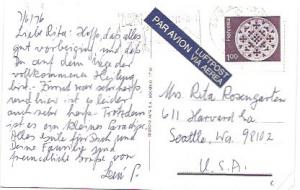 7/6/76
Liebe Rita: Hoffe, daß alles
gut vorbeiging und daß
Du auf dem Wege der
vollkommenen Heilung
bist.
und hier ist es leider
auch sehr heiß. Trotzdem
ist es ein kleines Paradies.
Alles Gute für Dich und
Deine Familie und
freundliche Grüße von
PAR AVION LUFTPOST
VIA AEREA
Helvetia
100
Mrs Rita Rosengarten
611 Harvard Ea
Seattle, Wa. 98102
U.S.A.